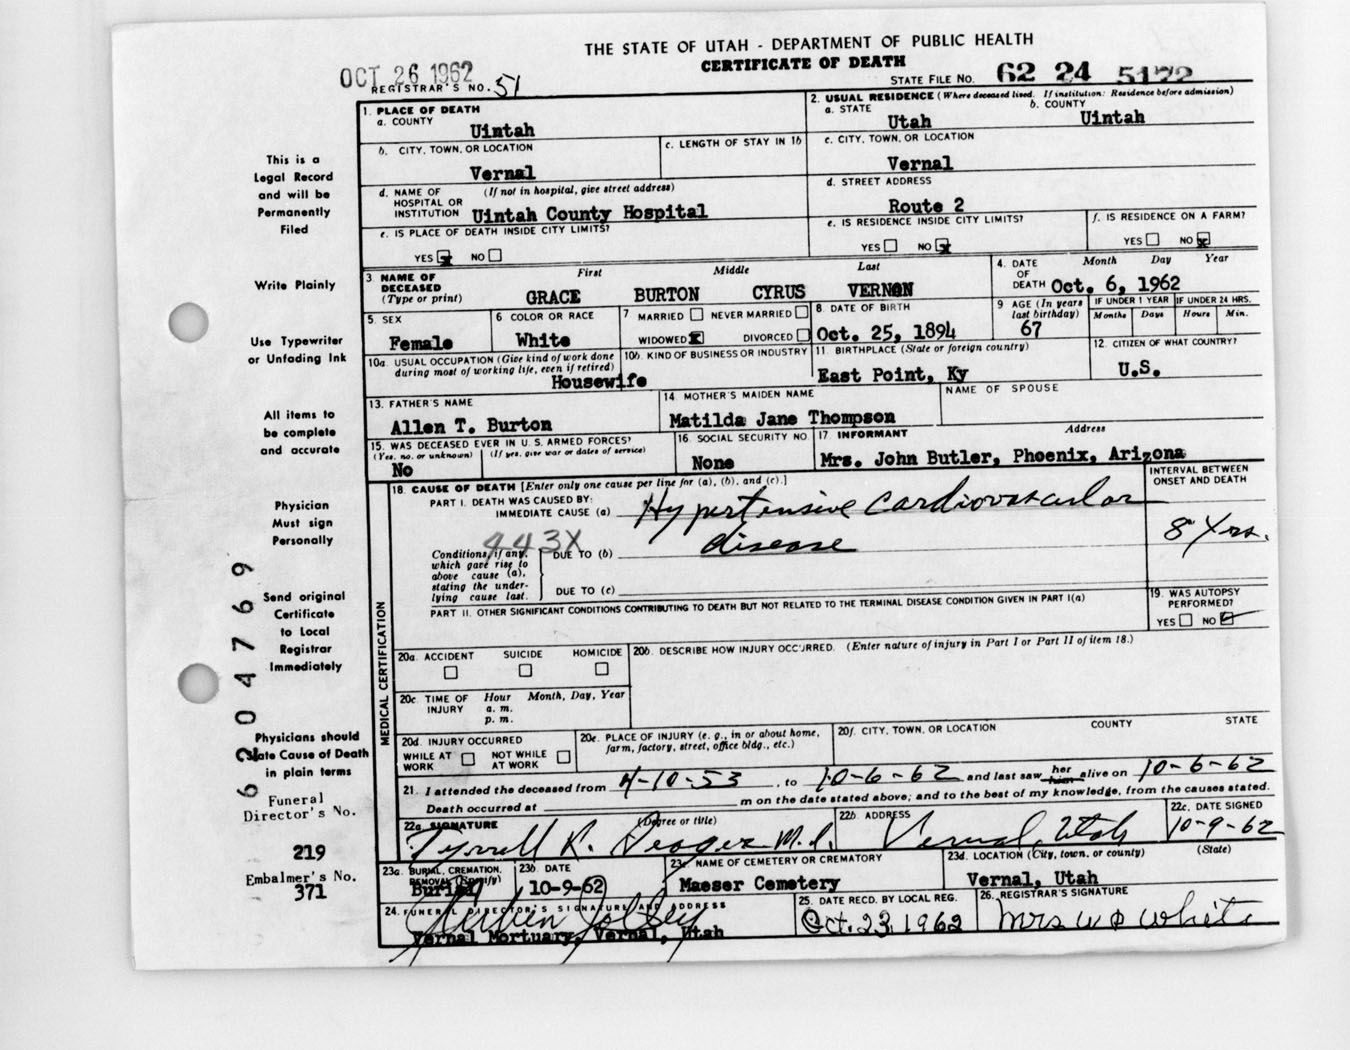 THE STATE OF UTAH - DEPARTMENT OF PUBLIC HEALTH
CERTIFICATE OF DEATH
OCT 26 1962
REGISTRAR'S NO. 51
STATE FILE NO. 62 24 5172
1. PLACE OF DEATH
a. COUNTY
Uintah
2. USUAL RESIDENCE (Where deceased lived. If institution: Residence before admission)
a. STATE
Utah
b. COUNTY
Uintah
b. CITY, TOWN, OR LOCATION
Vernal
c. LENGTH OF STAY IN 1b
c. CITY, TOWN, OR LOCATION
Vernal
d. NAME OF HOSPITAL OR INSTITUTION
(If not in hospital, give street address)
Uintah County Hospital
d. STREET ADDRESS
Route 2
e. IS PLACE OF DEATH INSIDE CITY LIMITS?
YES x NO
e. IS RESIDENCE INSIDE CITY LIMITS?
YES NO x
f. IS RESIDENCE ON A FARM?
YES NO x
3 NAME OF DECEASED (Type or print)
First Middle Last
GRACE BURTON CYRUS VERNON
4. DATE OF DEATH
Month Day Year
Oct. 6, 1962
5. SEX
Female
6 COLOR OR RACE
White
7 MARRIED NEVER MARRIED
WIDOWED x DIVORCED
8 DATE OF BIRTH
Oct. 25, 1894
9 AGE (In years last birthday)
67
IF UNDER 1 YEAR
Months Days
IF UNDER 24 HRS.
Hours Min.
10a. USUAL OCCUPATION (Give kind of work done during most of working life, even if retired)
Housewife
10b. KIND OF BUSINESS OR INDUSTRY
11 BIRTHPLACE (State or foreign country)
East Point, Ky
12. CITIZEN OF WHAT COUNTRY?
U.S.
13. FATHER'S NAME
Allen T. Burton
14. MOTHER'S MAIDEN NAME
Matilda Jane Thompson
NAME OF SPOUSE
15. WAS DECEASED EVER IN U.S. ARMED FORCES?
(Yes, no. or unknown) (If yes, give war or dates of service)
No
16. SOCIAL SECURITY NO.
None
17. INFORMANT
Address
Mrs. John Butler, Phoenix, Arizona
18. CAUSE OF DEATH [Enter only one cause per line for (a), (b), and (c).]
INTERVAL BETWEEN ONSET AND DEATH
PART I. DEATH WAS CAUSED BY:
IMMEDIATE CAUSE (a) Hypertensive cardiovascular
disease
8 Yrs.
443X
Conditions, if any, which gave rise to above cause (a), stating the underlying cause last.
DUE TO (b)
DUE TO (c)
PART II. OTHER SIGNIFICANT CONDITIONS CONTRIBUTING TO DEATH BUT NOT RELATED TO THE TERMINAL DISEASE CONDITION GIVEN IN PART I(a)
19. WAS AUTOPSY PERFORMED?
YES NO
MEDICAL CERTIFICATION
20a. ACCIDENT SUICIDE HOMICIDE
20b. DESCRIBE HOW INJURY OCCURRED. (Enter nature of injury in Part I or Part II of item 18.)
20c. TIME OF INJURY
Hour Month, Day, Year
a. m.
p. m.
20d. INJURY OCCURRED
WHILE AT WORK NOT WHILE AT WORK
20e. PLACE OF INJURY (e. g., in or about home, farm, factory, street, office bldg., etc.)
20f. CITY, TOWN, OR LOCATION COUNTY STATE
21. I attended the deceased from 4-10-53, to 10-6-62 and last saw her him alive on 10-6-62
Death occurred at m on the date stated above; and to the best of my knowledge, from the causes stated.
22a. SIGNATURE (Degree or title)
Tyrrell R. Seager M.D.
22b. ADDRESS
Vernal, Utah
22c. DATE SIGNED
10-9-62
23a. BURIAL, CREMATION, REMOVAL (Specify)
Burial
23b. DATE
10-9-62
23c. NAME OF CEMETERY OR CREMATORY
Maeser Cemetery
23d. LOCATION (City, town, or county) (State)
Vernal, Utah
24. FUNERAL DIRECTOR'S SIGNATURE AND ADDRESS
Vernal Mortuary, Vernal, Utah
25. DATE RECD. BY LOCAL REG.
Oct. 23, 1962
26. REGISTRAR'S SIGNATURE
Mrs W D White
This is a
Legal Record
and will be
Permanently
Filed
Write Plainly
Use Typewriter
or Unfading Ink
All items to
be complete
and accurate
Physician
Must sign
Personally
Send original
Certificate
to Local
Registrar
Immediately
Physicians should
State Cause of Death
in plain terms
Funeral
Director's No.
219
Embalmer's No.
371
62 04769